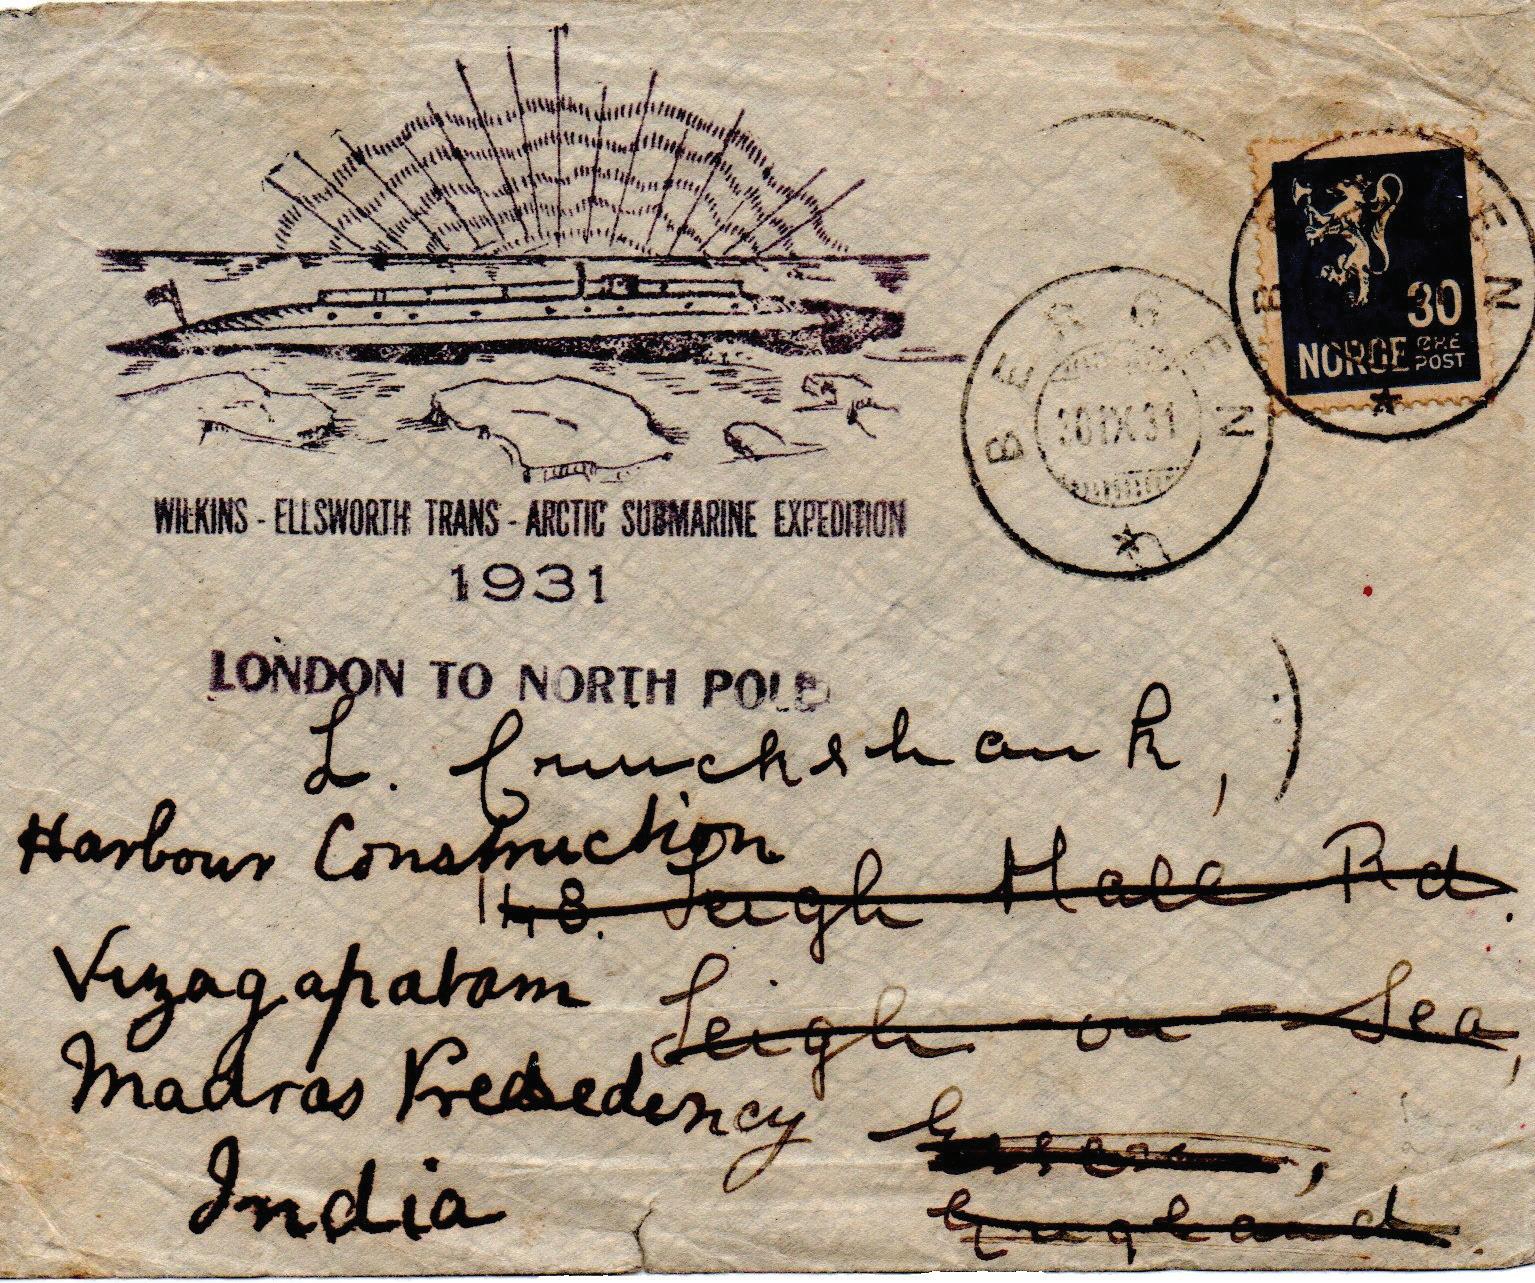 BERGEN
30 NORGE ØRE POST
BERGEN
30 IX 31
WILKINS - ELLSWORTH TRANS - ARCTIC SUBMARINE EXPEDITION
1931
LONDON TO NORTH POLE
L. Cruickshank,
Harbour Construction
148. Leigh Hall Rd.
Vizagapatam
Leigh-on-Sea,
Madras Presedency
Essex,
India
England.